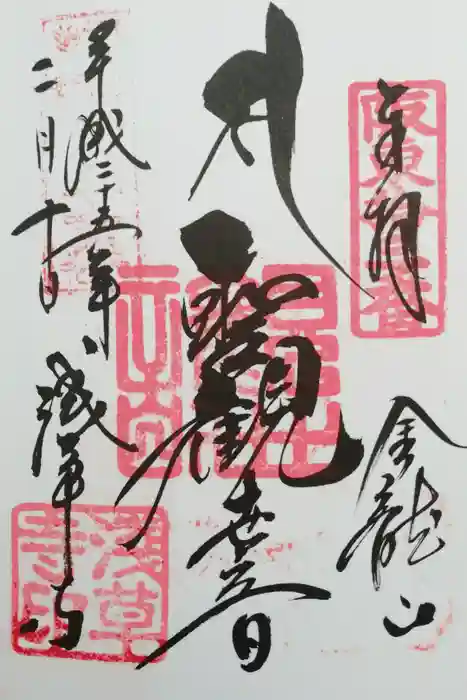 奉拝
金龍山
聖観世音
平成二十五年
二月十日
浅草寺
坂東十三番
浅草寺印